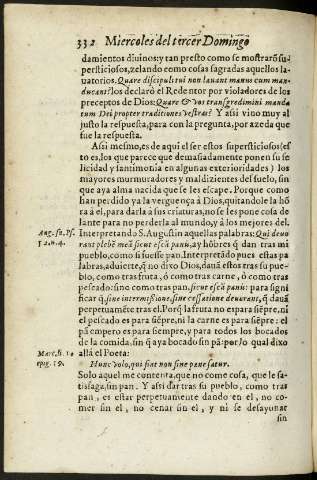 332 Miercoles del tercer Domingo
damientos diuinos: y tan presto como se mostrarõ su-
persticiosos, zelando como cosas sagradas aquellos la-
uatorios. Quare discipuli tui non lauant manus cum man-
ducant? los declarò el Redentor por violadores de los
preceptos de Dios: Quare & vos transgredimini manda
tum Dei propter traditiones vestras? Y assi vino muy al
justo la respuesta, para con la pregunta, por azeda que
fue la respuesta.
Assi mesmo, es de aqui el ser estos supersticiosos (es
to es, los que parece que demasiadamente ponen su fe
licidad y santimonia en algunas exterioridades) los
mayores murmuradores y maldizientes del suelo, sin
que aya alma nacida que se les escape. Porque como
han perdido ya la verguença à Dios, quitandole la hõ
ra à el, para darla à sus criaturas, no se les pone cosa de
lante para no perderla al mundo, y à los mejores del.
Aug. in Ps.
Interpretando S. Augustin aquellas palabras: Qui deuo
rant plebẽ meã sicut escã panis, ay hõbres q̃ dan tras mi
pueblo, como si fuesse pan. Interpretãdo pues estas pa
labras, aduierte, q̃ no dixo Dios, dauã estos tras su pue-
blo, como tras fruta, ò como tras carne, ò como tras
pescado: sino como tras pan. sicut escã panis: para signi
ficar q̃, sine intermissione, sine cessatione deuorant, q̃ dauã
perpetuamẽte tras el. Porq̃ la fruta no es para siẽpre, ni
el pescado es para siẽpre, ni la carne es para siẽpre: el
pã empero es para siempre, y para todos los bocados
de la comida, sin q̃ aya bocado sin pã: por lo qual dixo
Marc. li. 10
epig. 59.
allà el Poeta:
Hunc volo, qui fiat non sine pane satur.
Solo aquel me contenta, que no come cosa, que le sa-
tisfaga, sin pan. Y assi dar tras su pueblo, como tras
pan, es estar perpetuamente dando en el, no co-
mer sin el, no cenar sin el, y ni se desayunar
sin